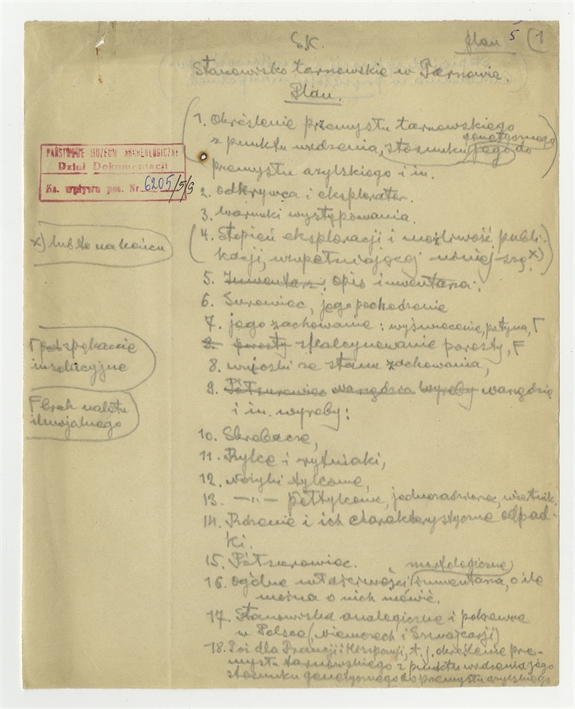 Ś.K.
Plan 5 (1
Stanowisko tarnowskie w Tarnowie.
Plan.
1. Określenie przemysłu tarnowskiego
z punktu widzenia, stosunku jego do
genetycznego
przemysłu azylskiego i in.
PAŃSTWOWE MUZEUM ARCHEOLOGICZNE
Dział Dokumentacji
Ks. wpływu poz. Nr 6205/5/9
2. Odkrywca i eksplorator.
3. Warunki występowania.
(4. Stopień eksploracji i możliwość publi-
kacji, uzupełniającej x))
x) lub to na końcu
5. Inwentarz, opis inwentarza:
6. Surowiec, jego pochodzenie
7. jego zachowanie: wyświecenie, patyna, Γ
8. porosty skalcynowanie porosty, F
Γ pot spękanie
insolacyjne
8. wnioski ze stanu zachowania,
9. Półsurowiec narzędzia wyroby narzędzia
i in. wyroby:
F brak nalotu
iluwjalnego
10. Skrobacze,
11. Rylce i rylczaki,
12. nożyki tylcowe,
13. —„— półtylcowe, jednozadziorce,
14. Rdzenie i ich charakterystyczne odpad-
ki.
15. Półsurowiec.
morfologiczne
16. Ogólne właściwości inwentarza, o ile
można o nich mówić.
17. Stanowiska analogiczne i pokrewne
w Polsce (, Niemczech i Szwajcarji)
18. i dla Francji i Hiszpanji, t. j. określenie prze-
mysłu tarnowskiego z punktu widzenia jego
stosunku genetycznego do przemysłu azylskiego